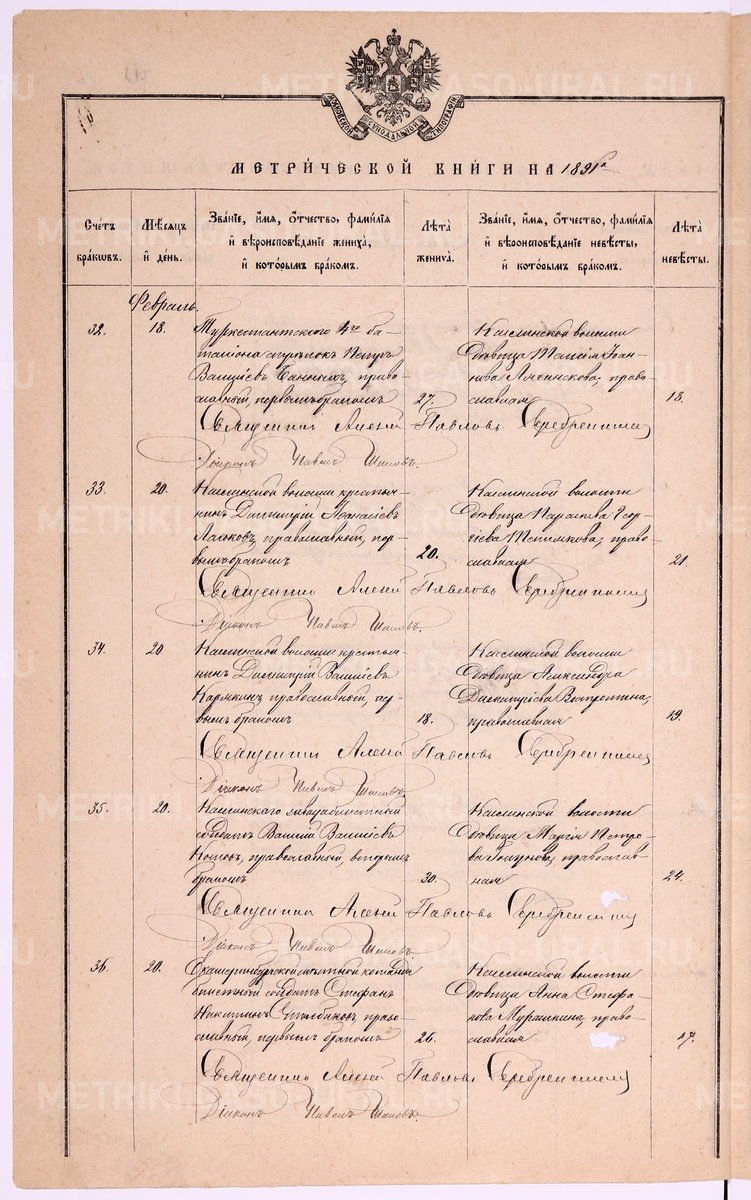 МОСКОВСКОЙ СѴНОДАЛЬНОЙ ТИПОГРАФІИ
МЕТРИ́ЧЕСКОЙ КНИ́ГИ НА 1891 го
Сче́тъ бра́кѡвъ.
Мѣ́сѧцъ и҆ де́нь.
Зва́нїе, и҆́мѧ, ѻ҆́тчество, фами́лїѧ и҆ вѣроисповѣ́данїе жениха̀, и҆ кото́рымъ бра́комъ.
Лѣ́та жениха̀.
Зва́нїе, и҆́мѧ, ѻ҆́тчество, фами́лїѧ и҆ вѣроисповѣ́данїе невѣ́сты, и҆ кото́рымъ бра́комъ.
Лѣ́та невѣ́сты.
Февраль.
32.
18.
Туркестантского 4го ба-
таліона стрѣлокъ Петръ
Василіевъ право-
славный, первымъ бракомъ
27.
Каслинской волости
дѣвица Таисія Іоан-
нова право-
славная
18.
Священникъ Алексѣй Павловъ Серебренниковъ
Діаконъ Павелъ
33.
20.
Каслинской волости крестья-
нинъ Димитрій Аѳанасіевъ
православный, пер-
вымъ бракомъ
20.
Каслинской волости
дѣвица Параскева Геор-
гіева право-
славная
21.
Священникъ Алексѣй Павловъ Серебренниковъ
Діаконъ Павелъ
34.
20.
Каслинской волости крестья-
нинъ Димитрій Василіевъ
православный, пер-
вымъ бракомъ
18.
Каслинской волости
дѣвица Александра
Димитріева Востротина,
православная
19.
Священникъ Алексѣй Павловъ Серебренниковъ
Діаконъ Павелъ
35.
20.
Каслинскаго завода
солдатъ Василій Василіевъ
православный, вторымъ
бракомъ
30.
Каслинской волости
дѣвица Марія Петро-
ва православ-
ная
24.
Священникъ Алексѣй Павловъ Серебренниковъ
Діаконъ Павелъ
36.
20.
Екатеринбургской мѣстной команды
солдатъ Стефанъ
Никитинъ право-
славный, первымъ бракомъ
26.
Каслинской волости
дѣвица Анна Стефа-
нова Мурашкина, право-
славная
17.
Священникъ Алексѣй Павловъ Серебренниковъ
Діаконъ Павелъ